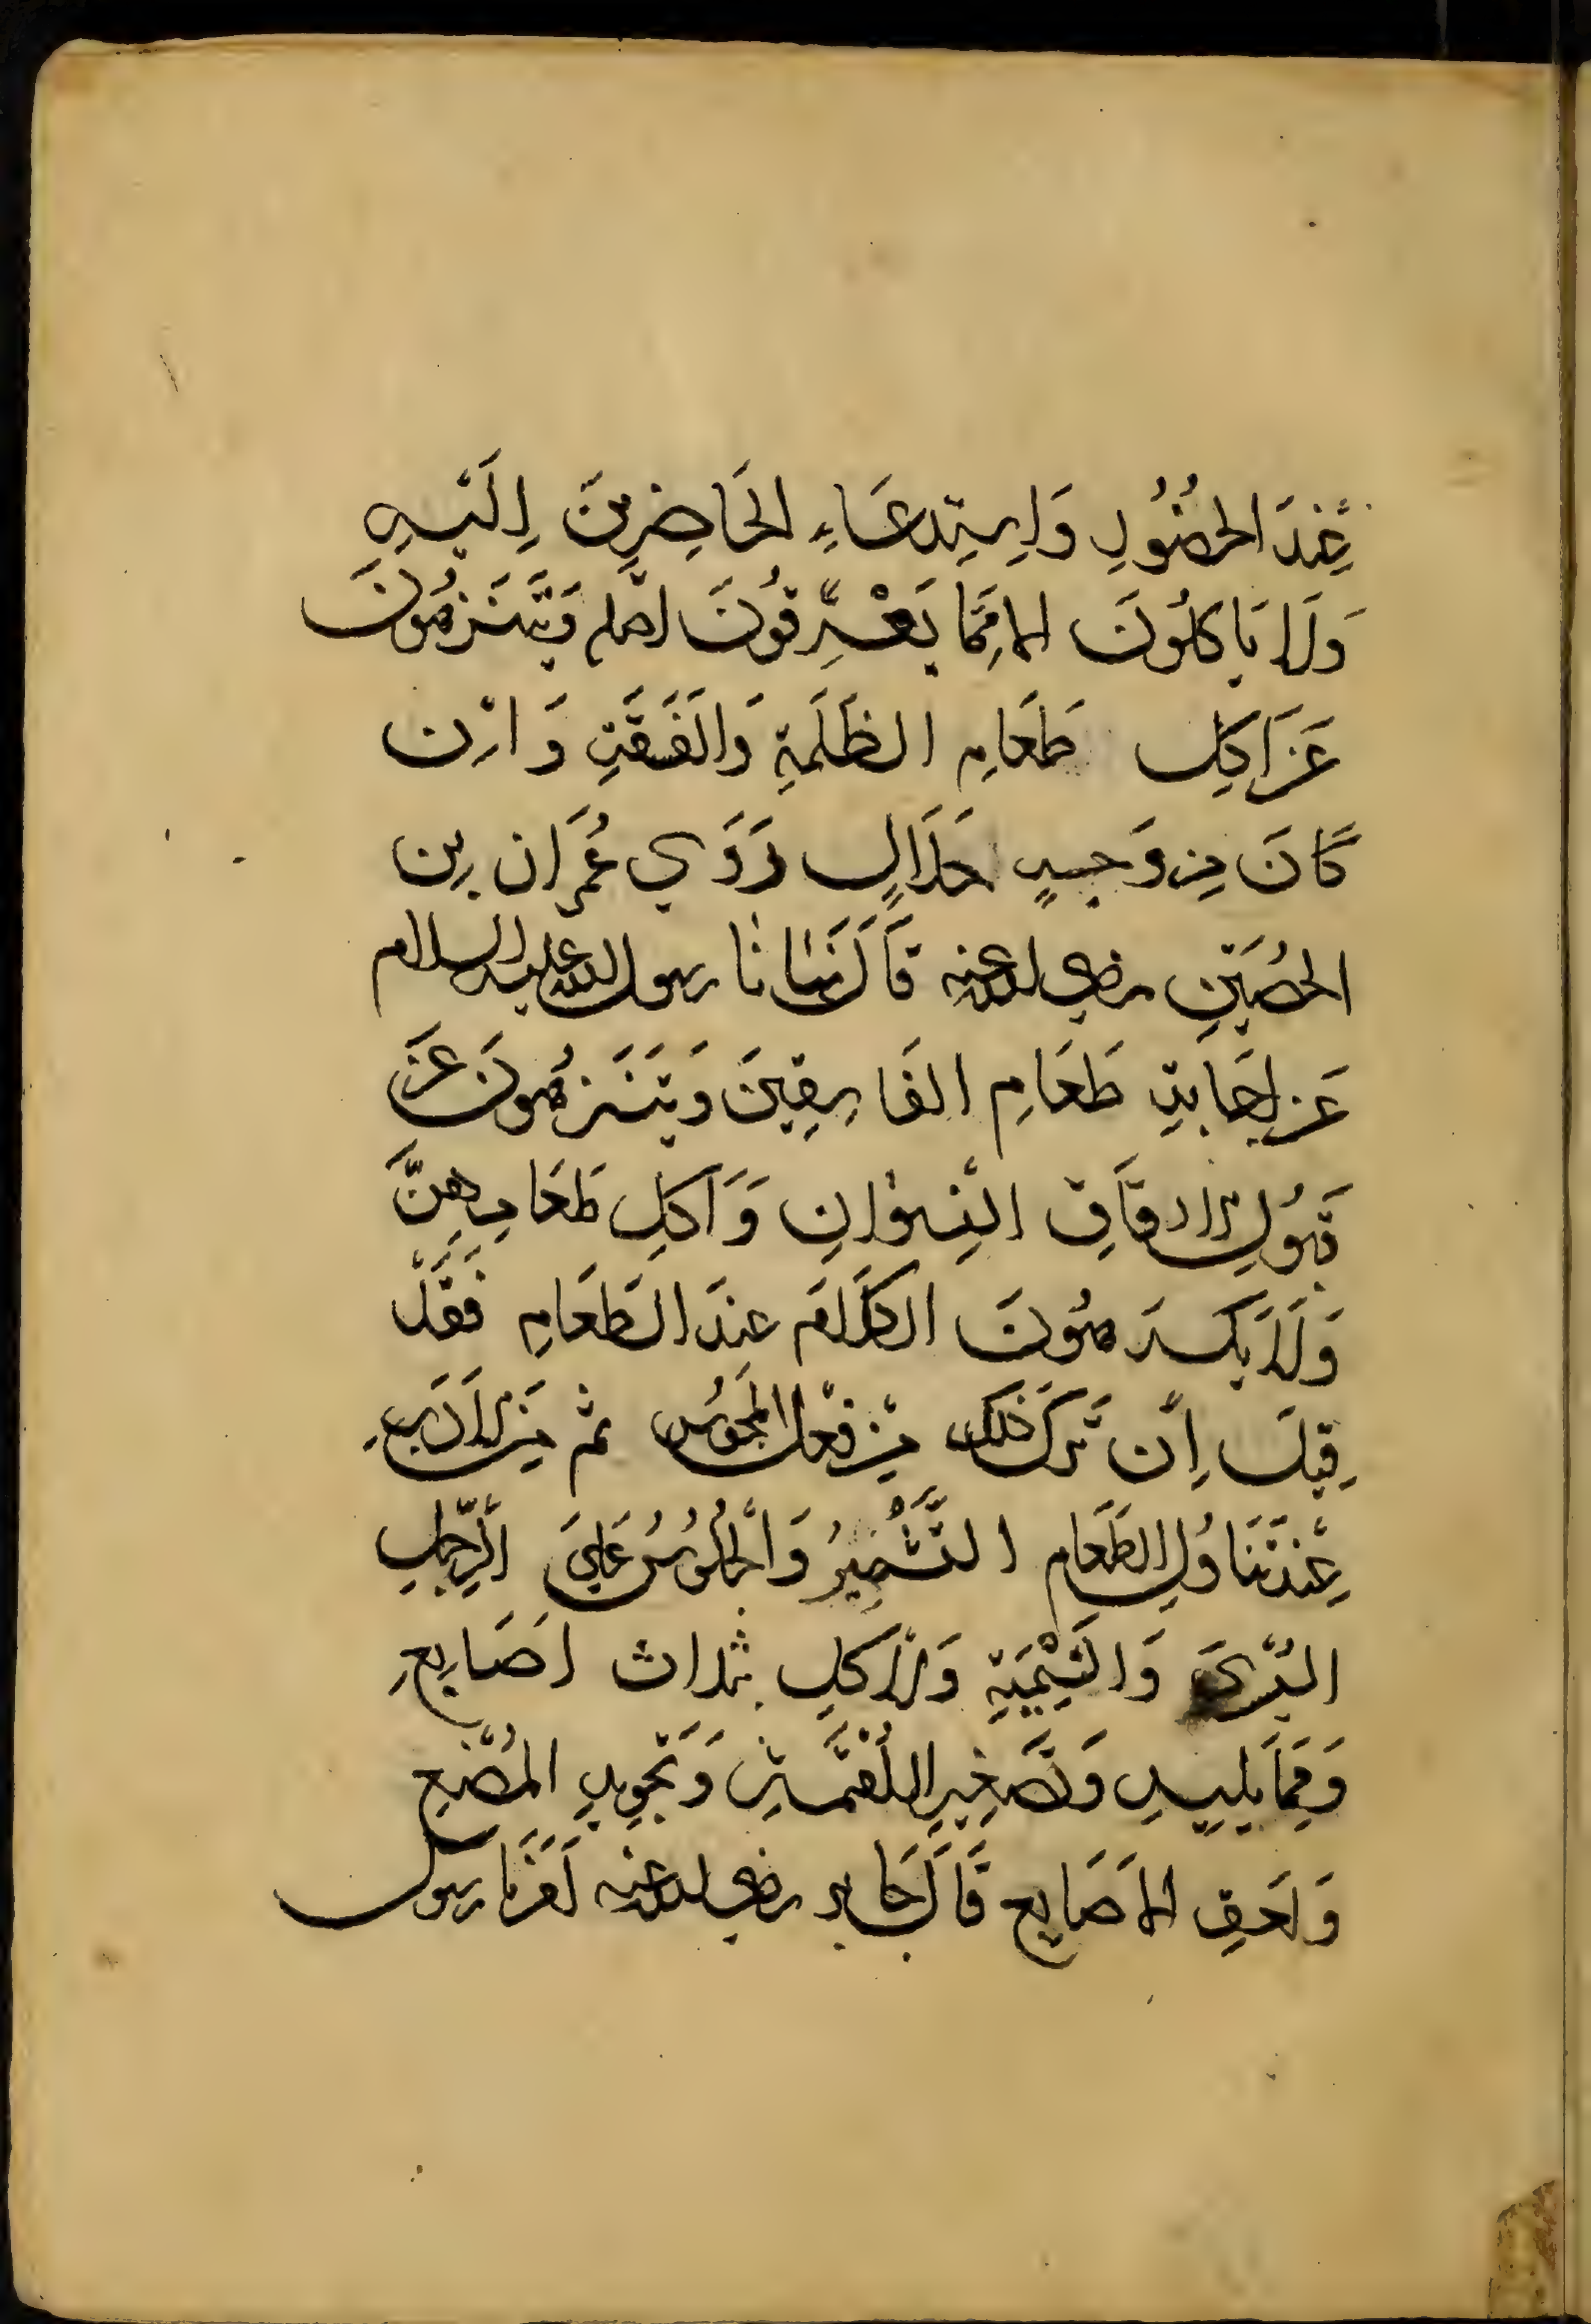 عِندَ الحُضُورِ وَاِستِدعَاءِ الحَاضِرِينَ اِلَيهِ
وَلَا يَاكلُونَ اِلا مِمَّا يَعْرِفُونَ اصله وَيَتَنَزهُونَ
عَن اَكِل طَعَامِ الظَلَمَةِ وَالفَسَقَةِ وَ اِن
كَانَ مِن وَجهٍ حَلَالٍ رَوَي عُمرَان بِن
الحُصَينِ رضي الله عنه قَالَ نَهَانَا رسول الله عليه السلام
عَن اِجَابَةِ طَعَامِ الفَاسِقِينَ وَيَتَنَزهُونَ عَن
قَبُولِ ارفَاقِ النِسوَانِ وَاَكلِ طَعَامِهِنَّ
وَلَا يَكرهُونَ الكَلَامَ عندَ الطَعَامِ فَقَدْ
قِيلَ اِنَّ تَركَ ذلك مِن فعل المَجُوسِ ثم مِن الاَدَبِ
عِندَ تَنَاوُلِ الطَعَام التَّشْمِيرُ وَالجُلُوسُ عَلَيَ الرِّجلِ
اليُسرَى وَالتَسْمِيَةِ وَالاَكلِ بثلاث اَصَابِعِ
وَمِمَا يَلِيهِ وَتَصغِيرِ اللُقْمَةِ وَتَجوِيدِ المَضغِ
وَلَعقِ الاَصَابِع قَالَ جَابر رضي الله عنه اَمَرَنَا رسول